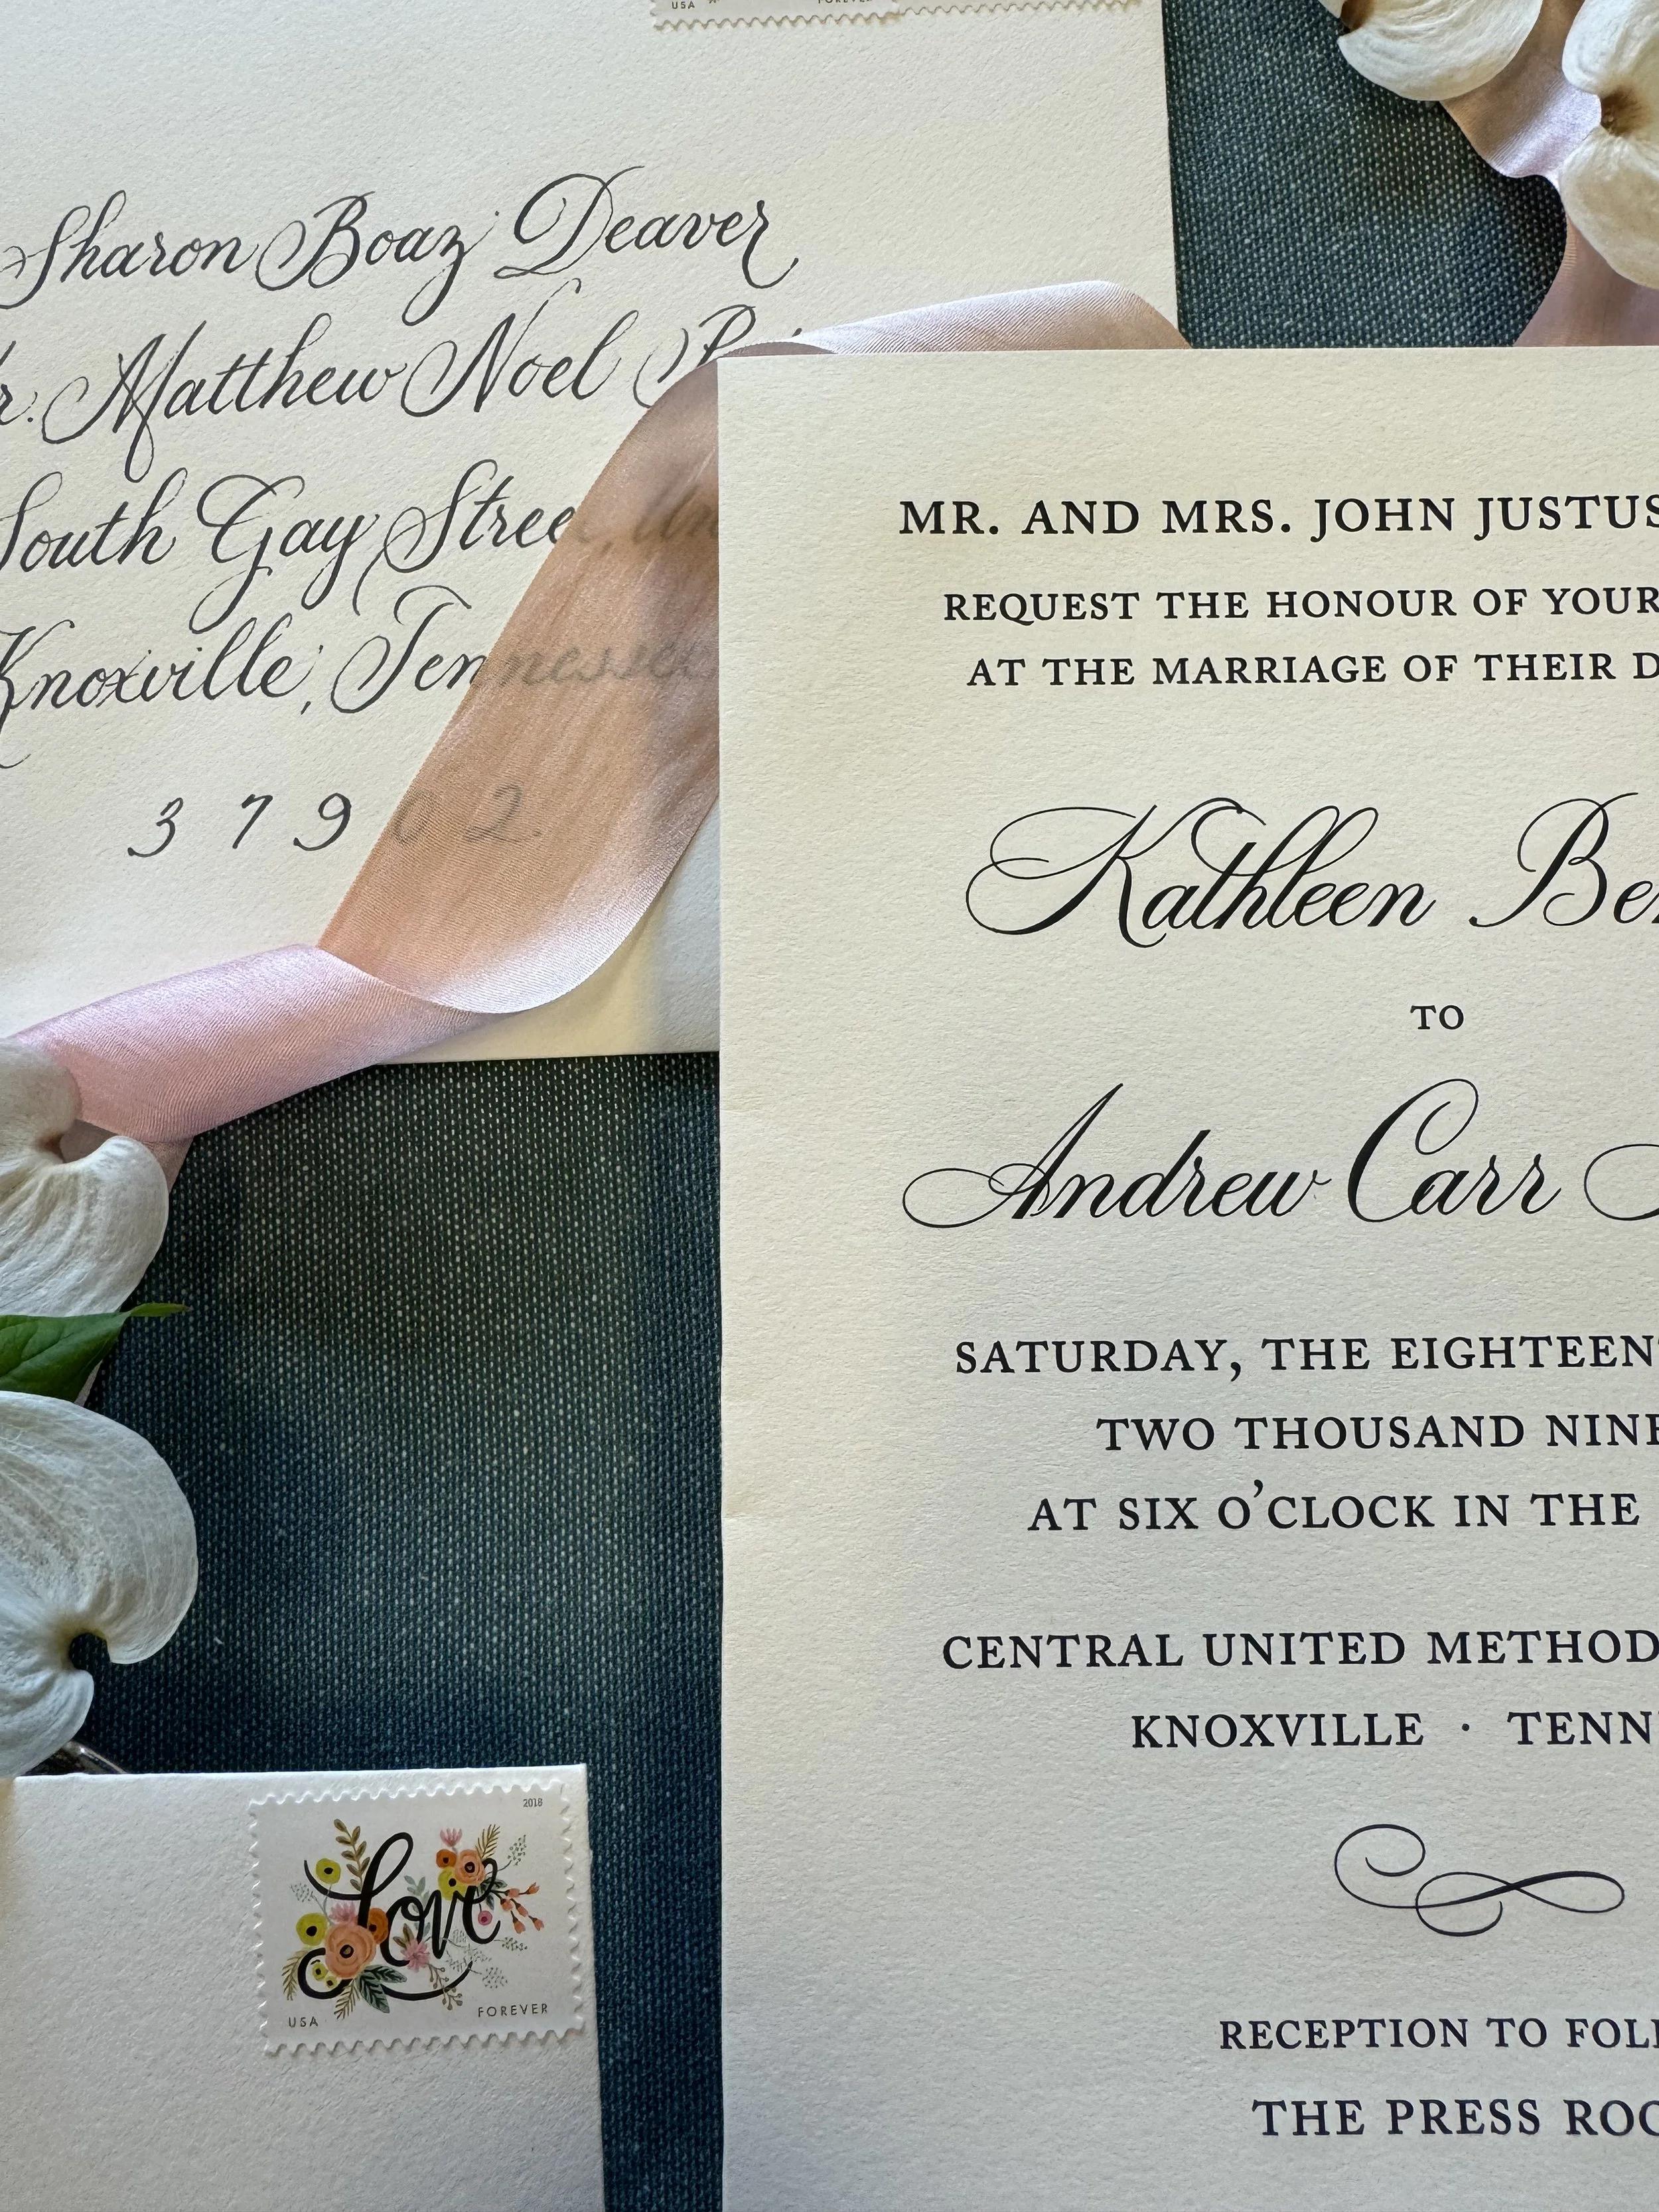 USA FOREVER
Sharon Boaz Deaver
Matthew Noel
South Gay Street,
Knoxville, Tennessee
37902.
MR. AND MRS. JOHN JUSTUS
REQUEST THE HONOUR OF YOUR
AT THE MARRIAGE OF THEIR
Kathleen
TO
Andrew Carr
SATURDAY, THE
TWO THOUSAND
AT SIX O'CLOCK IN THE
CENTRAL UNITED
KNOXVILLE ·
RECEPTION TO
THE PRESS
2018
love
USA FOREVER